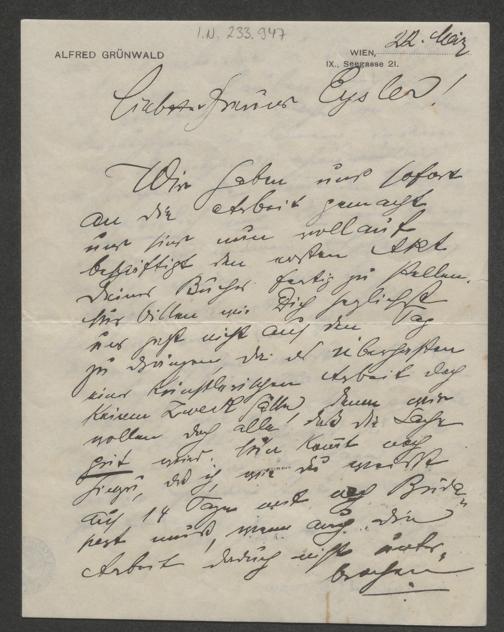 I.N. 233.947
ALFRED GRÜNWALD
22. März
WIEN,
IX., Seegasse 21.
Liebster Freund Eysler!
Wir haben uns sofort
an die Arbeit gemacht
und sind nun vollauf
beschäftigt den ersten Akt
Deines Buches fertig zu stellen.
Nur bitten wir Dich
uns jetzt nicht auf den Tag
zu drängen, da das überhasten
einer künstlerischen Arbeit doch
keinen Zweck hätte, denn wir
wollen doch alle, daß die Sache
gut wird. Nun kommt noch
hinzu, daß ich, wie Du weißt
auf 14 Tage nach Buda-
pest muß, wenn auch die
Arbeit dadurch nicht unter-
brochen